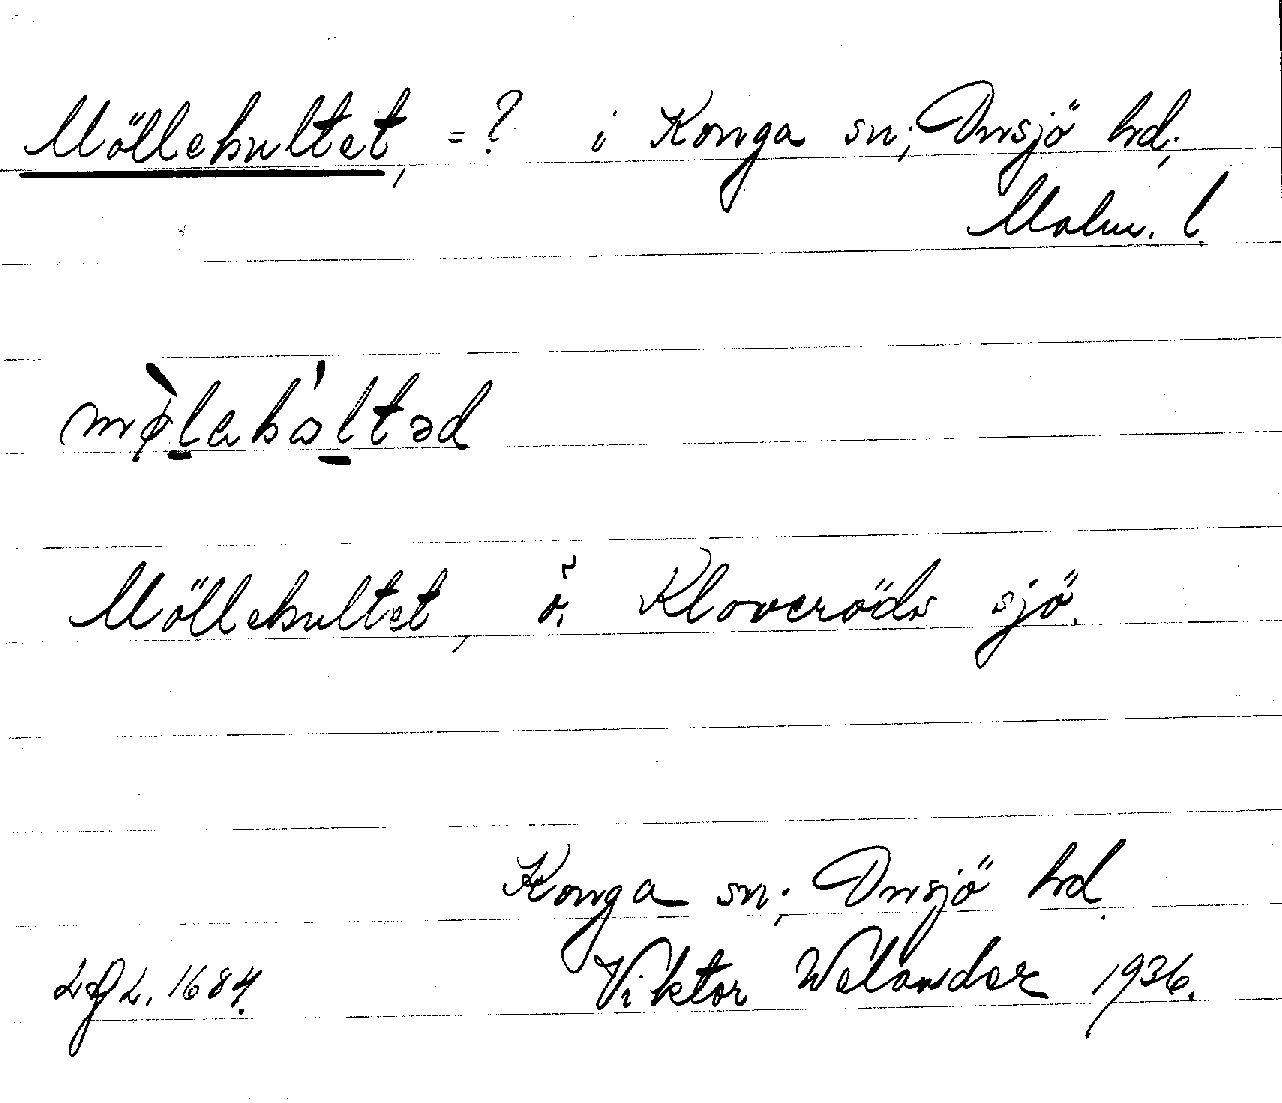 Möllebultet, = ? i Konga sn; Onsjö hd;
Malm. l.
mø̀labál̠təd
Möllebultet, ö. Kloveröds sjö.
Konga sn; Onsjö hd.
Viktor Welander 1936.